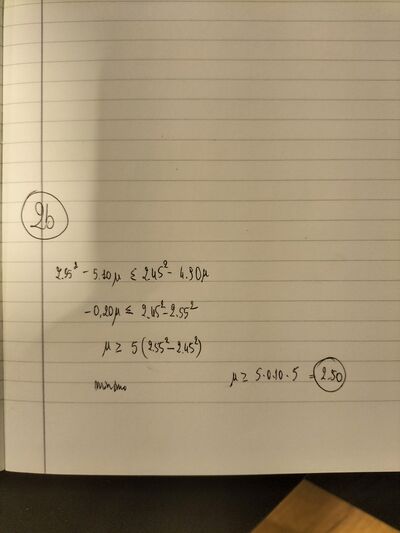 26
2.55² - 5.10μ ≤ 2.45² - 4.90μ
-0,20μ ≤ 2.45² - 2.55²
μ ≥ 5(2.55² - 2.45²)
μ ≥ 5·0.10·5 = 2.50